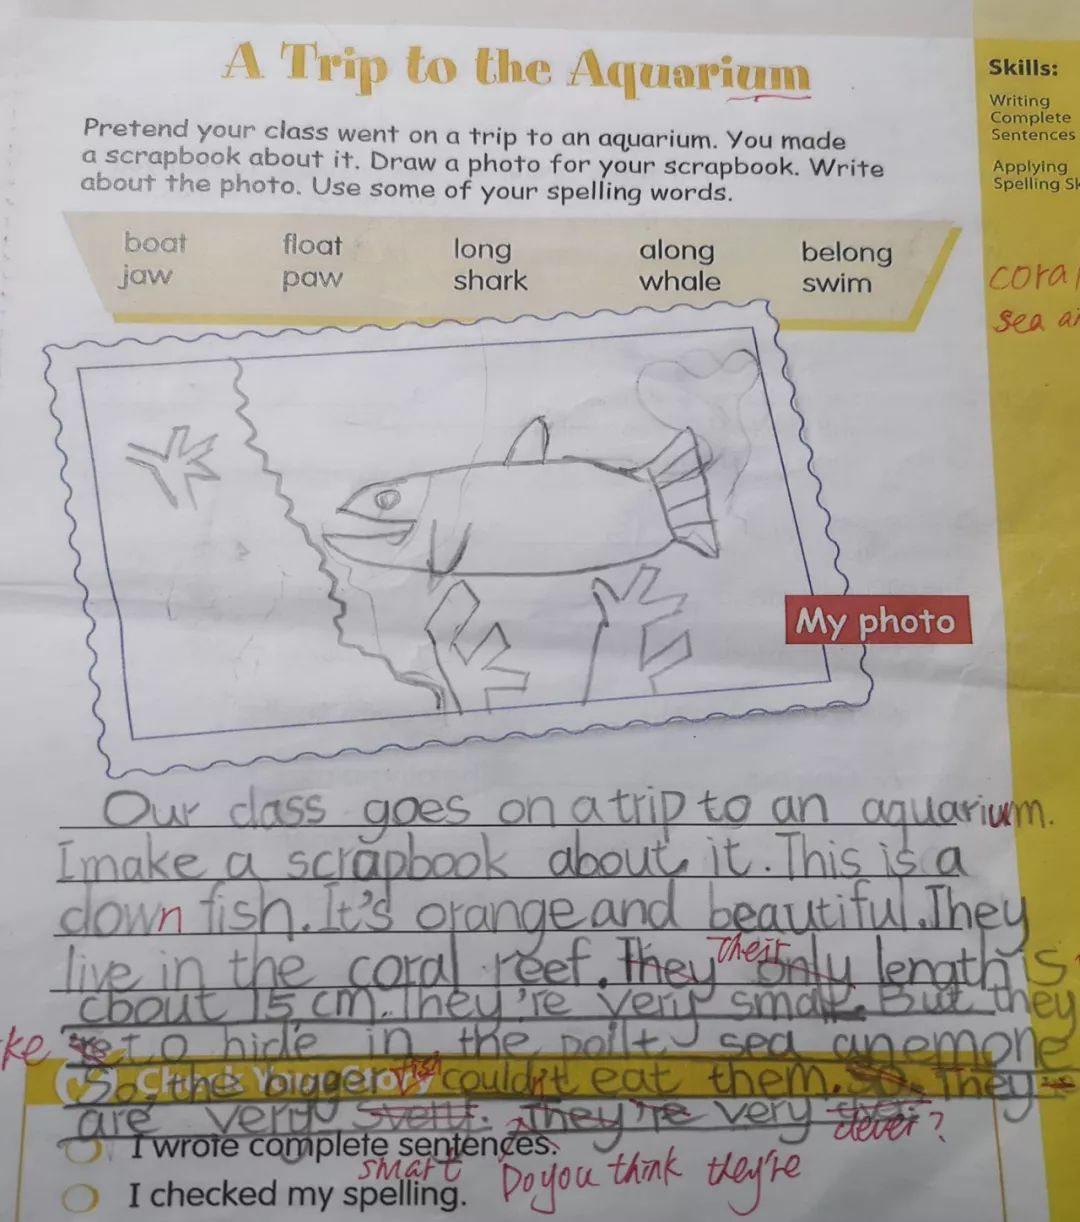 A Trip to the Aquarium
Skills:
Writing
Complete
Sentences
Applying
Spelling Sk
Pretend your class went on a trip to an aquarium. You made
a scrapbook about it. Draw a photo for your scrapbook. Write
about the photo. Use some of your spelling words.
boat float long along belong
jaw paw shark whale swim
coral
sea an
My photo
Our class goes on a trip to an aquarium.
I make a scrapbook about it. This is a
down fish. It's orange and beautiful. They
live in the coral reef. They Their only length is
about 15 cm. They're very small. But they
ke to hide in the sea anemone
So, the bigger fish couldn't eat them. So, They
are very They're very clever?
Check Your Story
I wrote complete sentences.
smart Do you think they're
I checked my spelling.